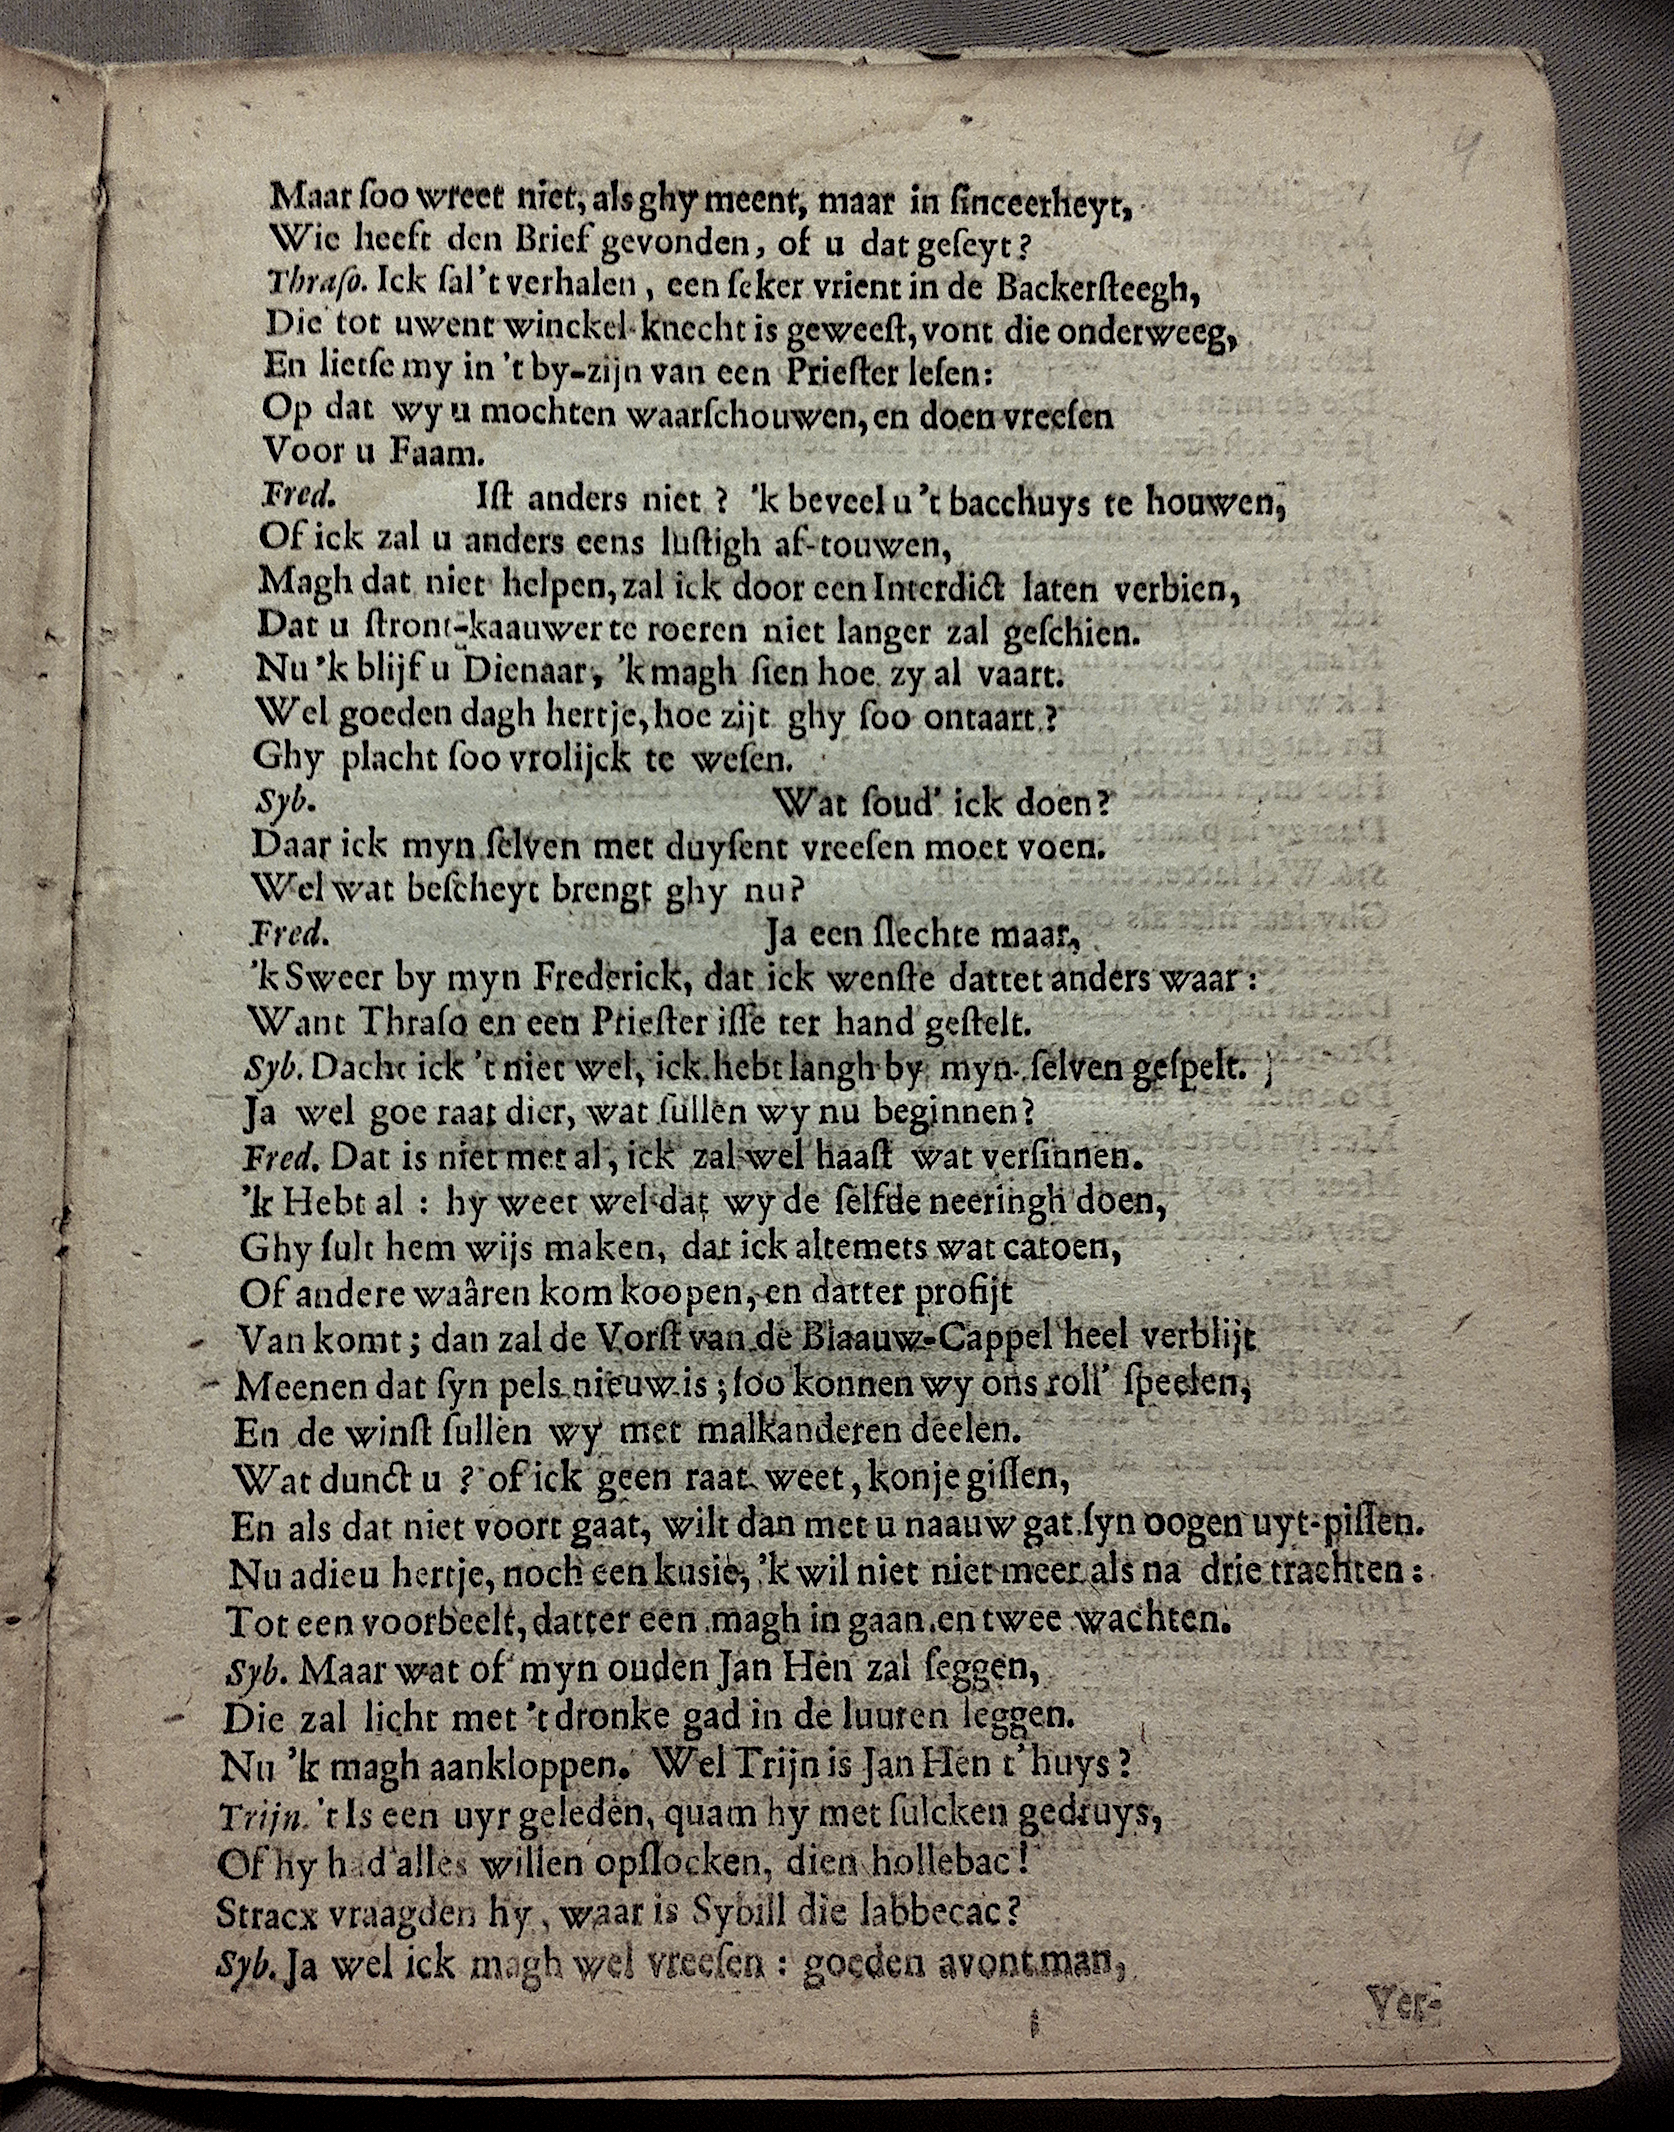 4
Maar ſoo wreet niet, als ghy meent, maar in ſinceerheyt,
Wie heeft den Brief gevonden, of u dat geſeyt?
Thraſo. Ick ſal 't verhalen, een ſeker vrient in de Backerſteegh,
Die tot uwent winckel-knecht is geweeſt, vont die onderweeg,
En lietſe my in 't by-zijn van een Prieſter leſen:
Op dat wy u mochten waarſchouwen, en doen vreeſen
Voor u Faam.
Fred. Iſt anders niet? 'k beveel u 't bacchuys te houwen,
Of ick zal u anders eens luſtigh af-touwen,
Magh dat niet helpen, zal ick door een Interdict laten verbien,
Dat u ſtront-kaauwer te roeren niet langer zal geſchien.
Nu 'k blijf u Dienaar, 'k magh ſien hoe zy al vaart.
Wel goeden dagh hertje, hoe zijt ghy ſoo ontaart?
Ghy placht ſoo vrolijck te weſen.
Syb. Wat ſoud' ick doen?
Daar ick myn ſelven met duyſent vreeſen moet voen.
Wel wat beſcheyt brengt ghy nu?
Fred. Ja een ſlechte maar,
'k Sweer by myn Frederick, dat ick wenſte dattet anders waar:
Want Thraſo en een Prieſter iſſe ter hand geſtelt.
Syb. Dacht ick 't niet wel, ick hebt langh by myn ſelven geſpelt.
Ja wel goe raat dier, wat ſullen wy nu beginnen?
Fred. Dat is niet met al, ick zal wel haaſt wat verſinnen.
'k Hebt al: hy weet wel dat wy de ſelfde neeringh doen,
Ghy ſult hem wijs maken, dat ick altemets wat catoen,
Of andere waâren kom koopen, en datter profijt
Van komt; dan zal de Vorſt van de Blaauw-Cappel heel verblijt
Meenen dat ſyn pels nieuw is; ſoo konnen wy ons roll' ſpeelen,
En de winſt ſullen wy met malkanderen deelen.
Wat dunct u? of ick geen raat weet, konje giſſen,
En als dat niet voort gaat, wilt dan met u naauw gat ſyn oogen uyt-piſſen.
Nu adieu hertje, noch een kusie, 'k wil niet niet meer als na drie trachten:
Tot een voorbeelt, datter een magh in gaan en twee wachten.
Syb. Maar wat of myn ouden Jan Hen zal ſeggen,
Die zal licht met 't dronke gad in de luuren leggen.
Nu 'k magh aankloppen. Wel Trijn is Jan Hen t' huys?
Trijn. 't Is een uyr geleden, quam hy met ſulcken gedruys,
Of hy had alles willen opſlocken, dien hollebac!
Stracx vraagden hy, waar is Sybill die labbecac?
Syb. Ja wel ick magh wel vreeſen: goeden avont man,
Ver-